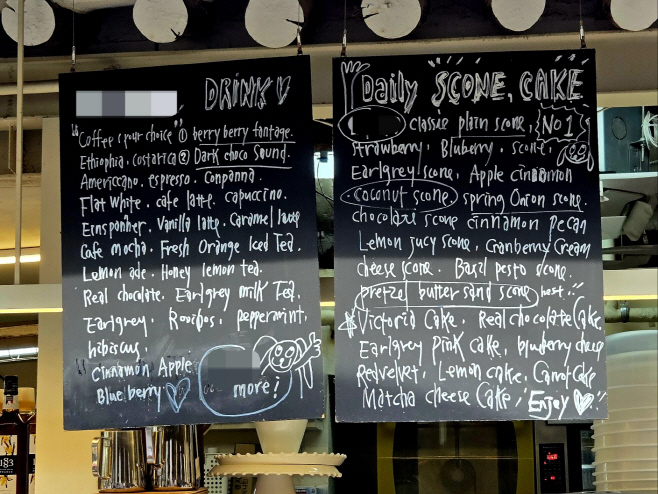 DRINK
"Coffee & your choice ① berry berry fantage.
Ethiophia. costarica ② Dark choco Sound.
Americcano. espresso. Conpanna.
Flat white. cafe latte. capuccino.
Ernspanner. Vanilla latte. Caramel latte
Cafe mocha. Fresh Orange Iced Tea.
Lemon ade. Honey lemon tea.
Real chocolate. Earlgrey milk Tea.
Earlgrey. Rooibos. peppermint.
hibiscus.
"Cinnamon Apple
Blueberry
more!
Daily SCONE, CAKE
classic plain scone. NO 1
Strawberry. Bluberry. scone
Earlgrey scone. Apple cinnamon
coconut scone. spring Onion scone.
chocolaxi scone cinnamon pecan
Lemon jucy scone. Cranberry Cream
cheese scone. Basil pesto scone.
pretzel butter sand scone best!!
Victoria Cake. Real chocolate Cake.
Earlgrey pink cake. blueberry cheese
Redvelvet. Lemon cake. Carrot Cake
Matcha cheese Cake. Enjoy !!
1883